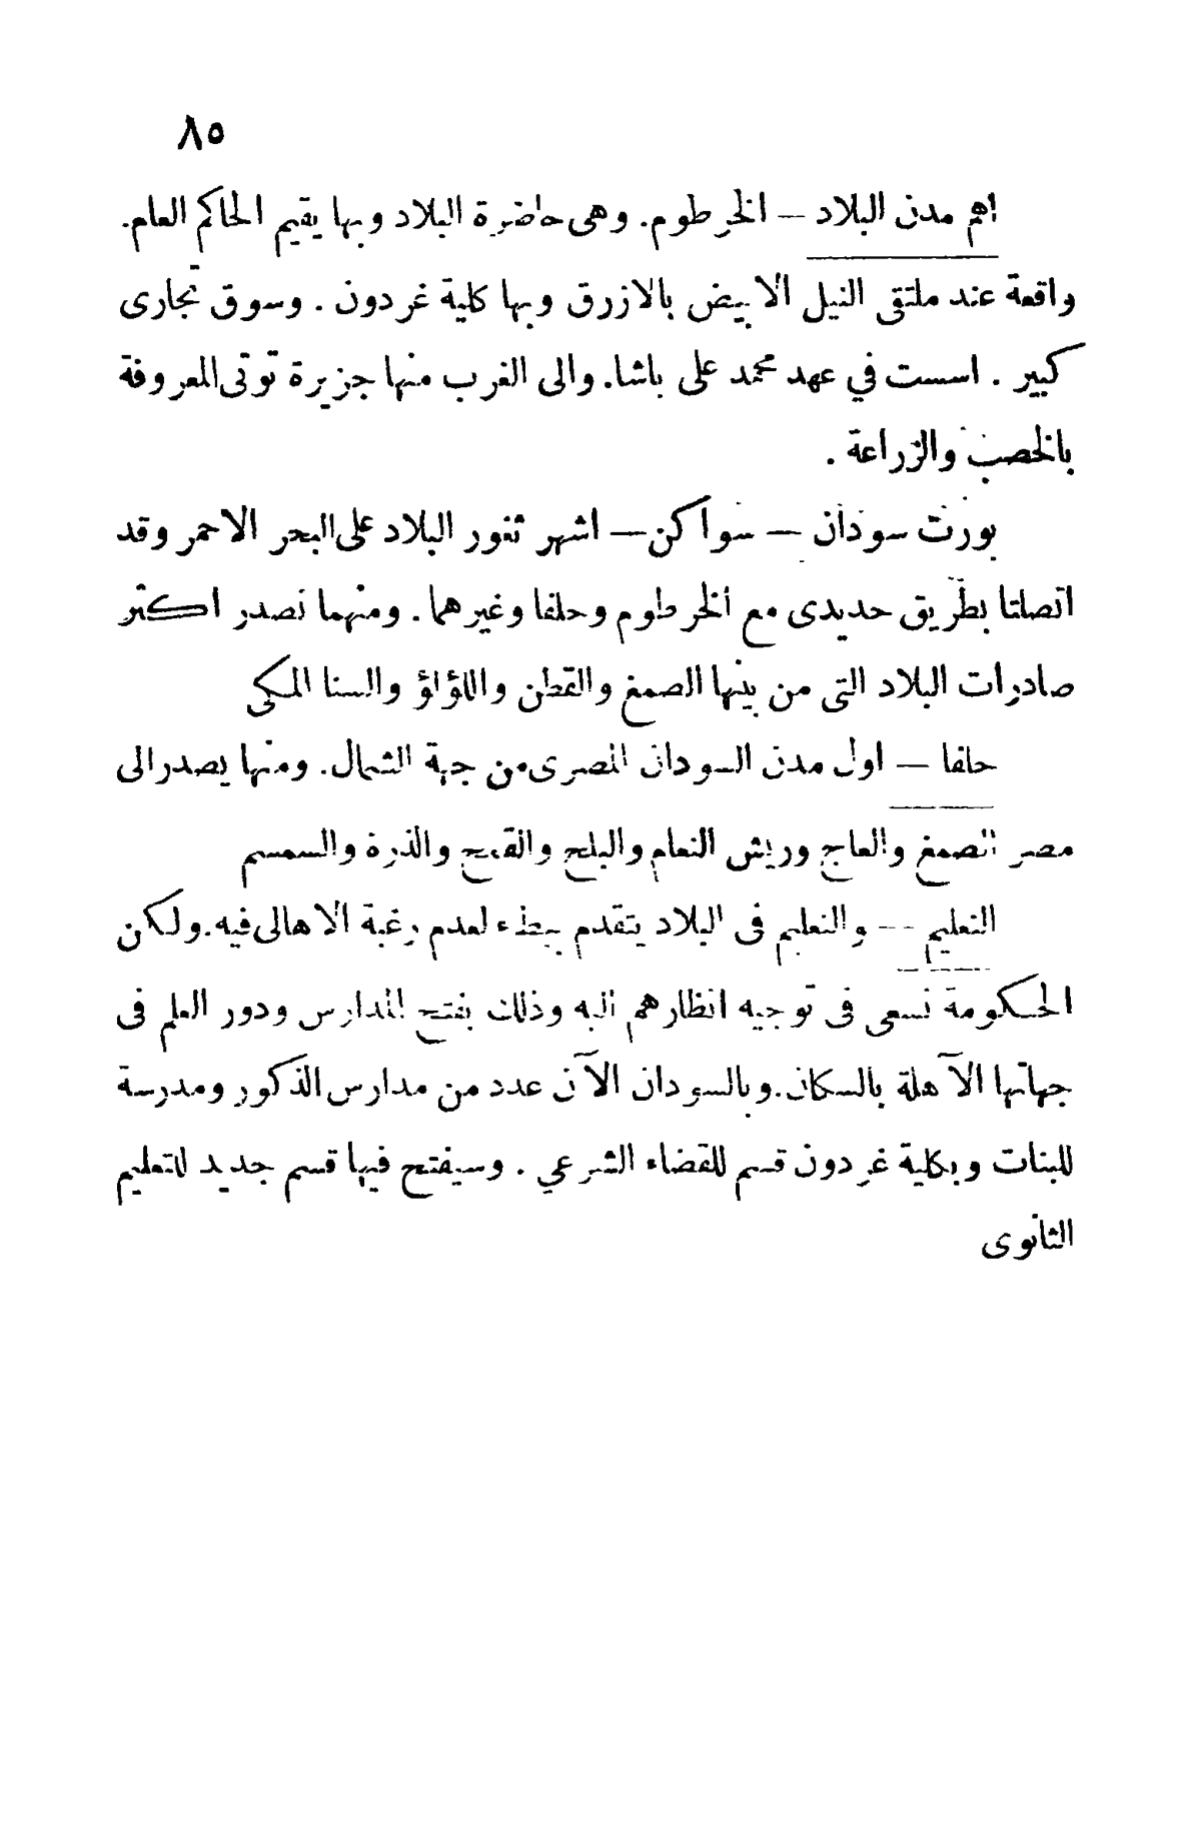 ٨٥
اهم مدن البلاد — الخرطوم. وهى حاضرة البلاد وبها يقيم الحاكم العام.
واقعة عند ملتقى النيل الابيض بالازرق وبها كلية غردون . وسوق تجارى
كبير . اسست في عهد محمد على باشا. والى الغرب منها جزيرة توتى المعروفة
بالخصب والزراعة .
بورت سودان — سواكن — اشهر ثغور البلاد على البحر الاحمر وقد
اتصلتا بطريق حديدى مع الخرطوم وحلفا وغيرهما . ومنهما تصدر اكثر
صادرات البلاد التى من بينها الصمغ والقطن واللؤلؤ والسنا المكى
حلفا — اول مدن السودان المصرى من جهة الشمال. ومنها يصدر الى
مصر الصمغ والعاج وريش النعام والبلح والقمح والذرة والسمسم
التعليم — والتعليم فى البلاد يتقدم ببطء لعدم رغبة الاهالى فيه. ولكن
الحكومة تسعى فى توجيه انظارهم اليه وذلك بفتح المدارس ودور العلم فى
جهاتها الآهلة بالسكان. وبالسودان الآن عدد من مدارس الذكور ومدرسة
للبنات وبكلية غردون قسم للقضاء الشرعي . وسيفتح فيها قسم جديد للتعليم
الثانوى